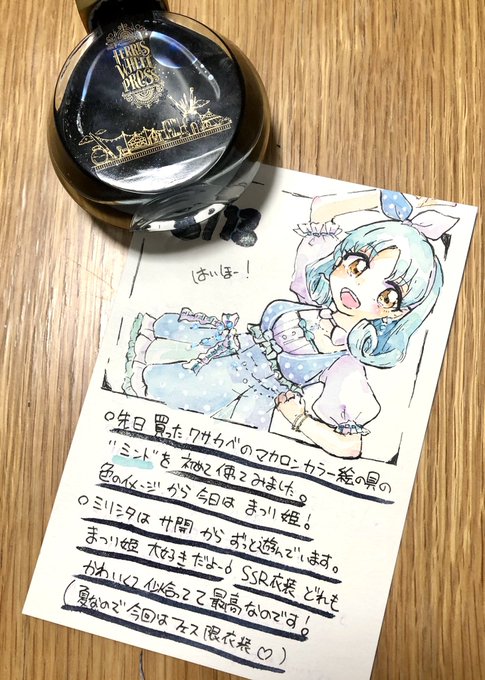 FERRIS
WHEEL
PRESS
はいほー!
○先日買ったクサカベのマカロンカラー絵の具の
"ミント"を初めて使てみました。
色のイメージから今日はまつり姫!
○ミリシタはサ開からずっと遊んでいます。
まつり姫大好きだよー! SSR衣装どれも
かわいくて似合ってて最高なのです!
(夏なので今回はフェス限衣装♡)